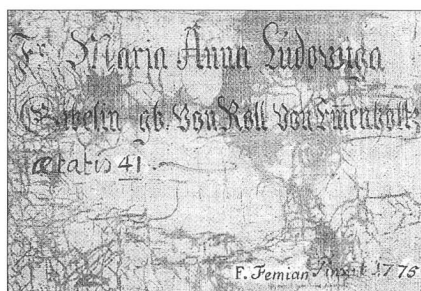 Fr. Maria Anna Ludowiga
Gibelin gb. Von Roll Von Em̃enholtz
ætatis 41.
F. Femian Pinxit 1775